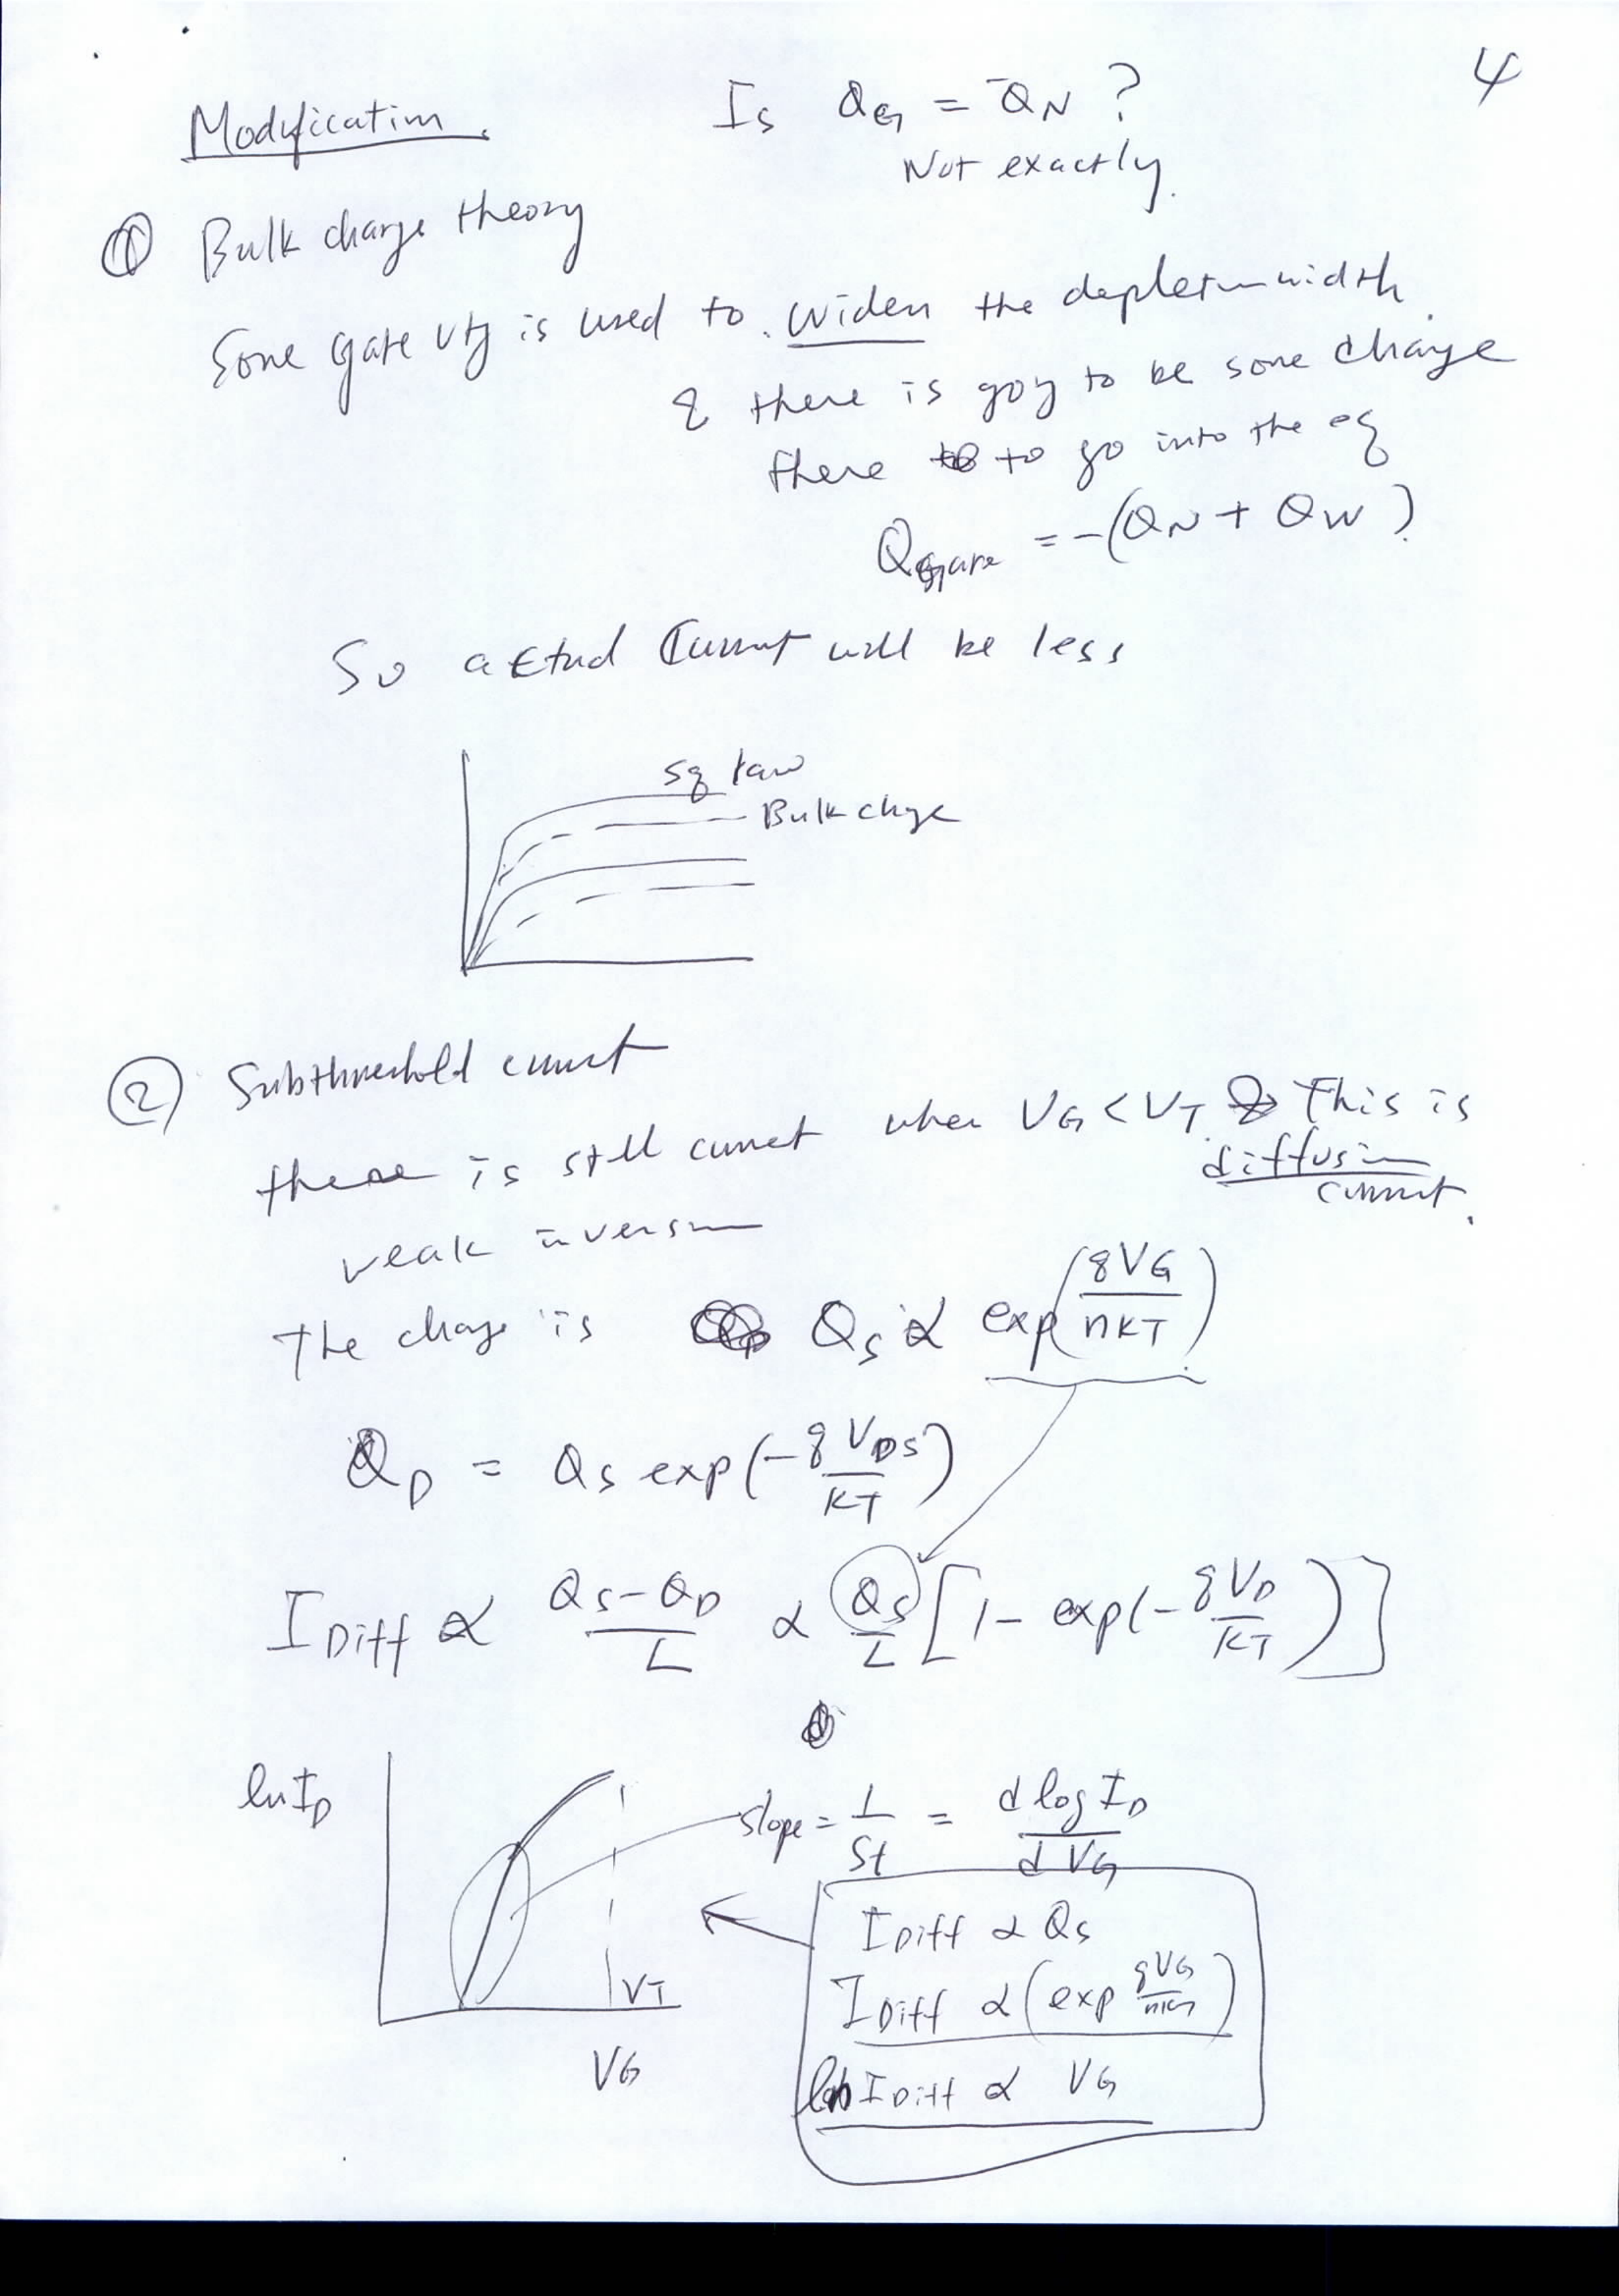 4
Modification.
Is QG = -QN ?
Not exactly.
① Bulk charge theory
Some gate vtg is used to widen the depletion width
& there is going to be some charge
there to go into the eq
Qgate = -(QN + QW)
So actual current will be less
sq law
Bulk chge
② Subthreshold current
there is still current when VG < VT. This is
diffusion
current.
weak inversion
The charge is QS ∝ exp(qVG/nKT)
QD = QS exp(-qVDS/KT)
IDiff ∝ (QS-QD)/L ∝ QS/L [1- exp(-qVD/KT)]
ln ID
slope = 1/St = d log ID/d VG
IDiff ∝ QS
IDiff ∝ (exp qVG/nKT)
VT
VG
ln IDiff ∝ VG